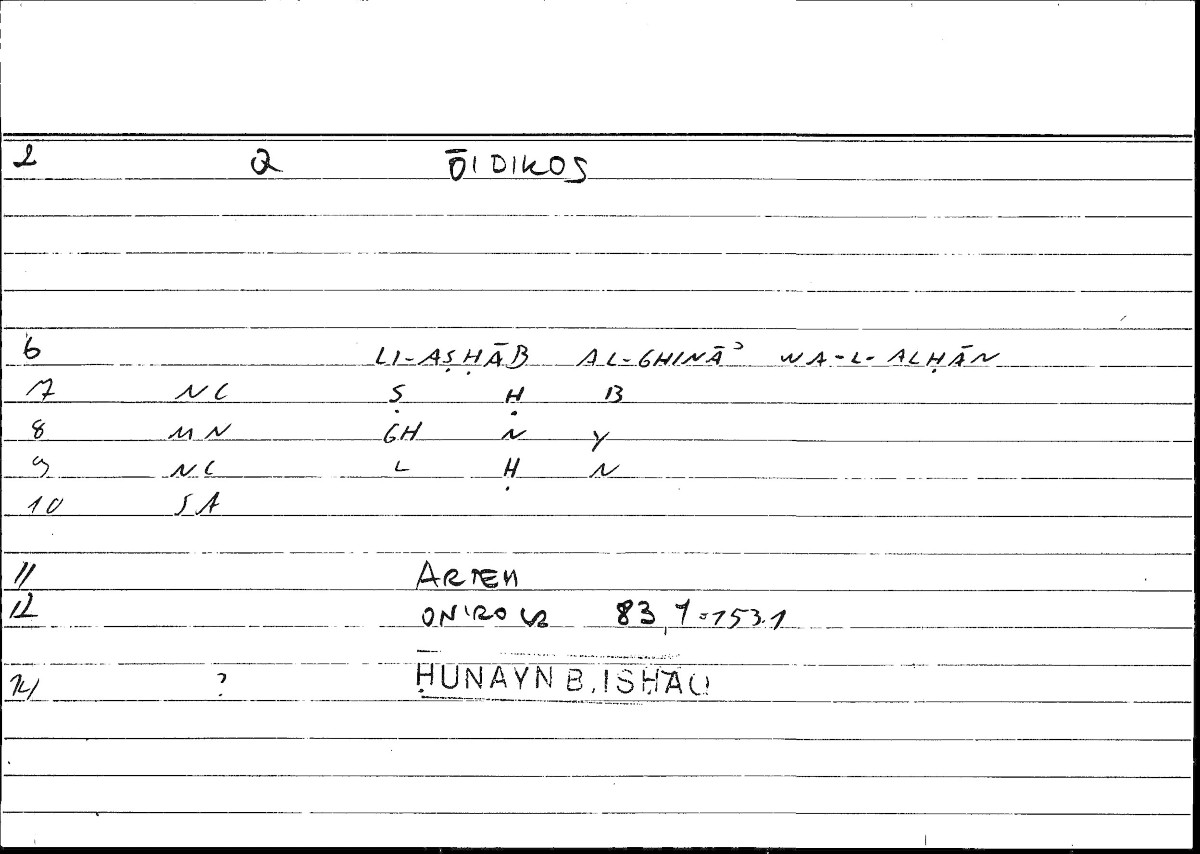 2 Q ŌIDIKOS
6 LI-AṢḤĀB AL-GHINĀʾ WA-L-ALḤĀN
7 NC Ṣ Ḥ B
8 MN GH N Y
9 NC L Ḥ N
10 SA
11 ARTEM
12 ONIROCR 83,1=153.1
14 ? ḤUNAYN B. ISḤĀQ